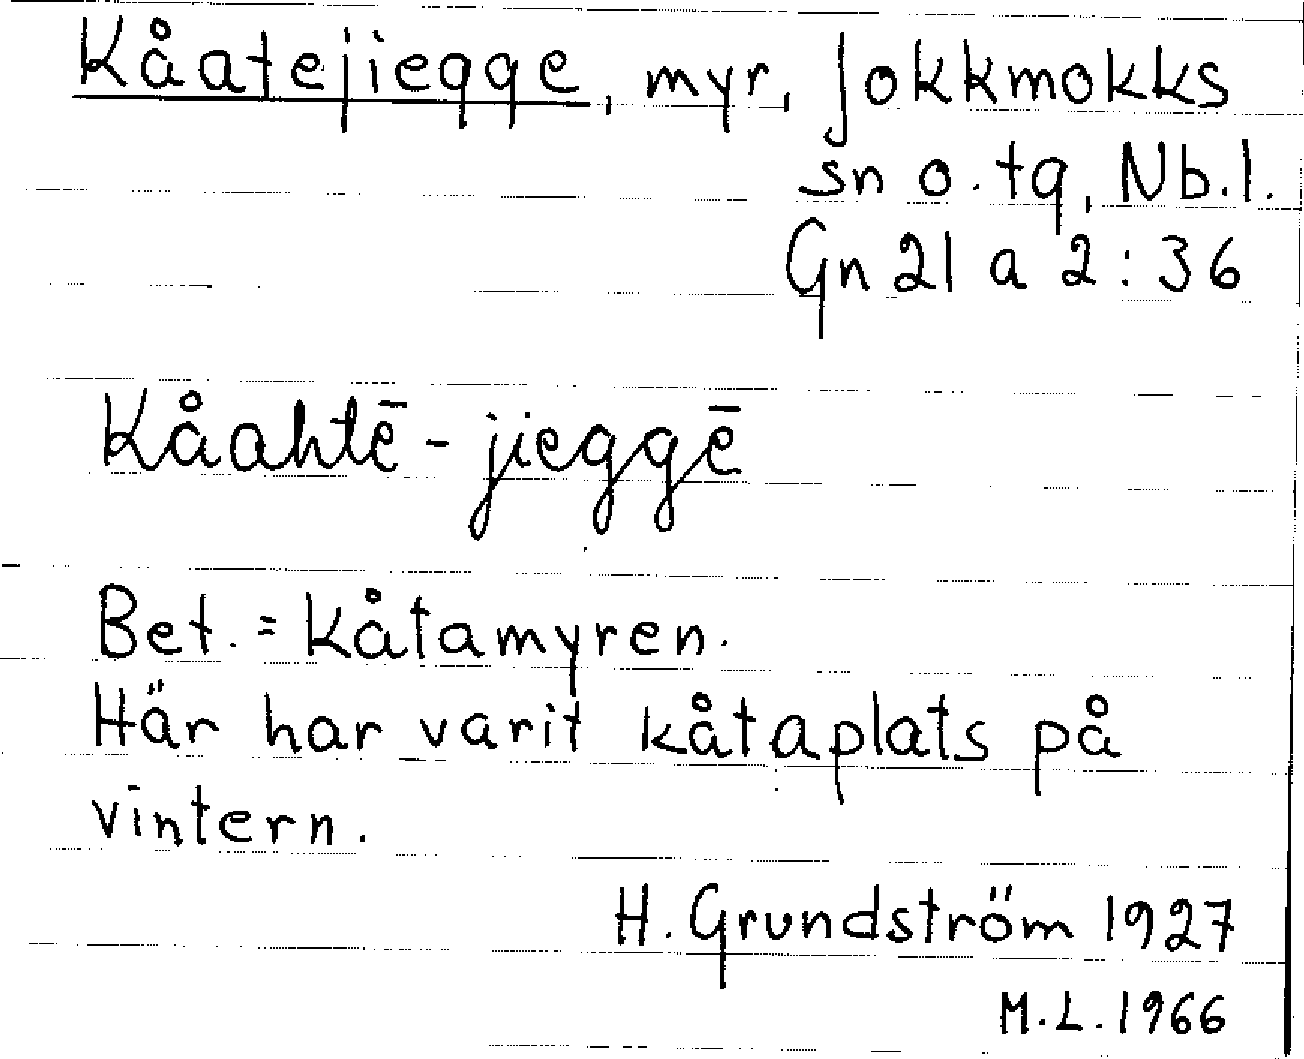 Kåatejiegge, myr, Jokkmokks
sn o. tg, Nb.l.
Gn 21 a 2:36
Kåahtē-jieggē
Bet. = Kåtamyren.
Här har varit kåtaplats på
vintern.
H. Grundström 1927
M.L. 1966